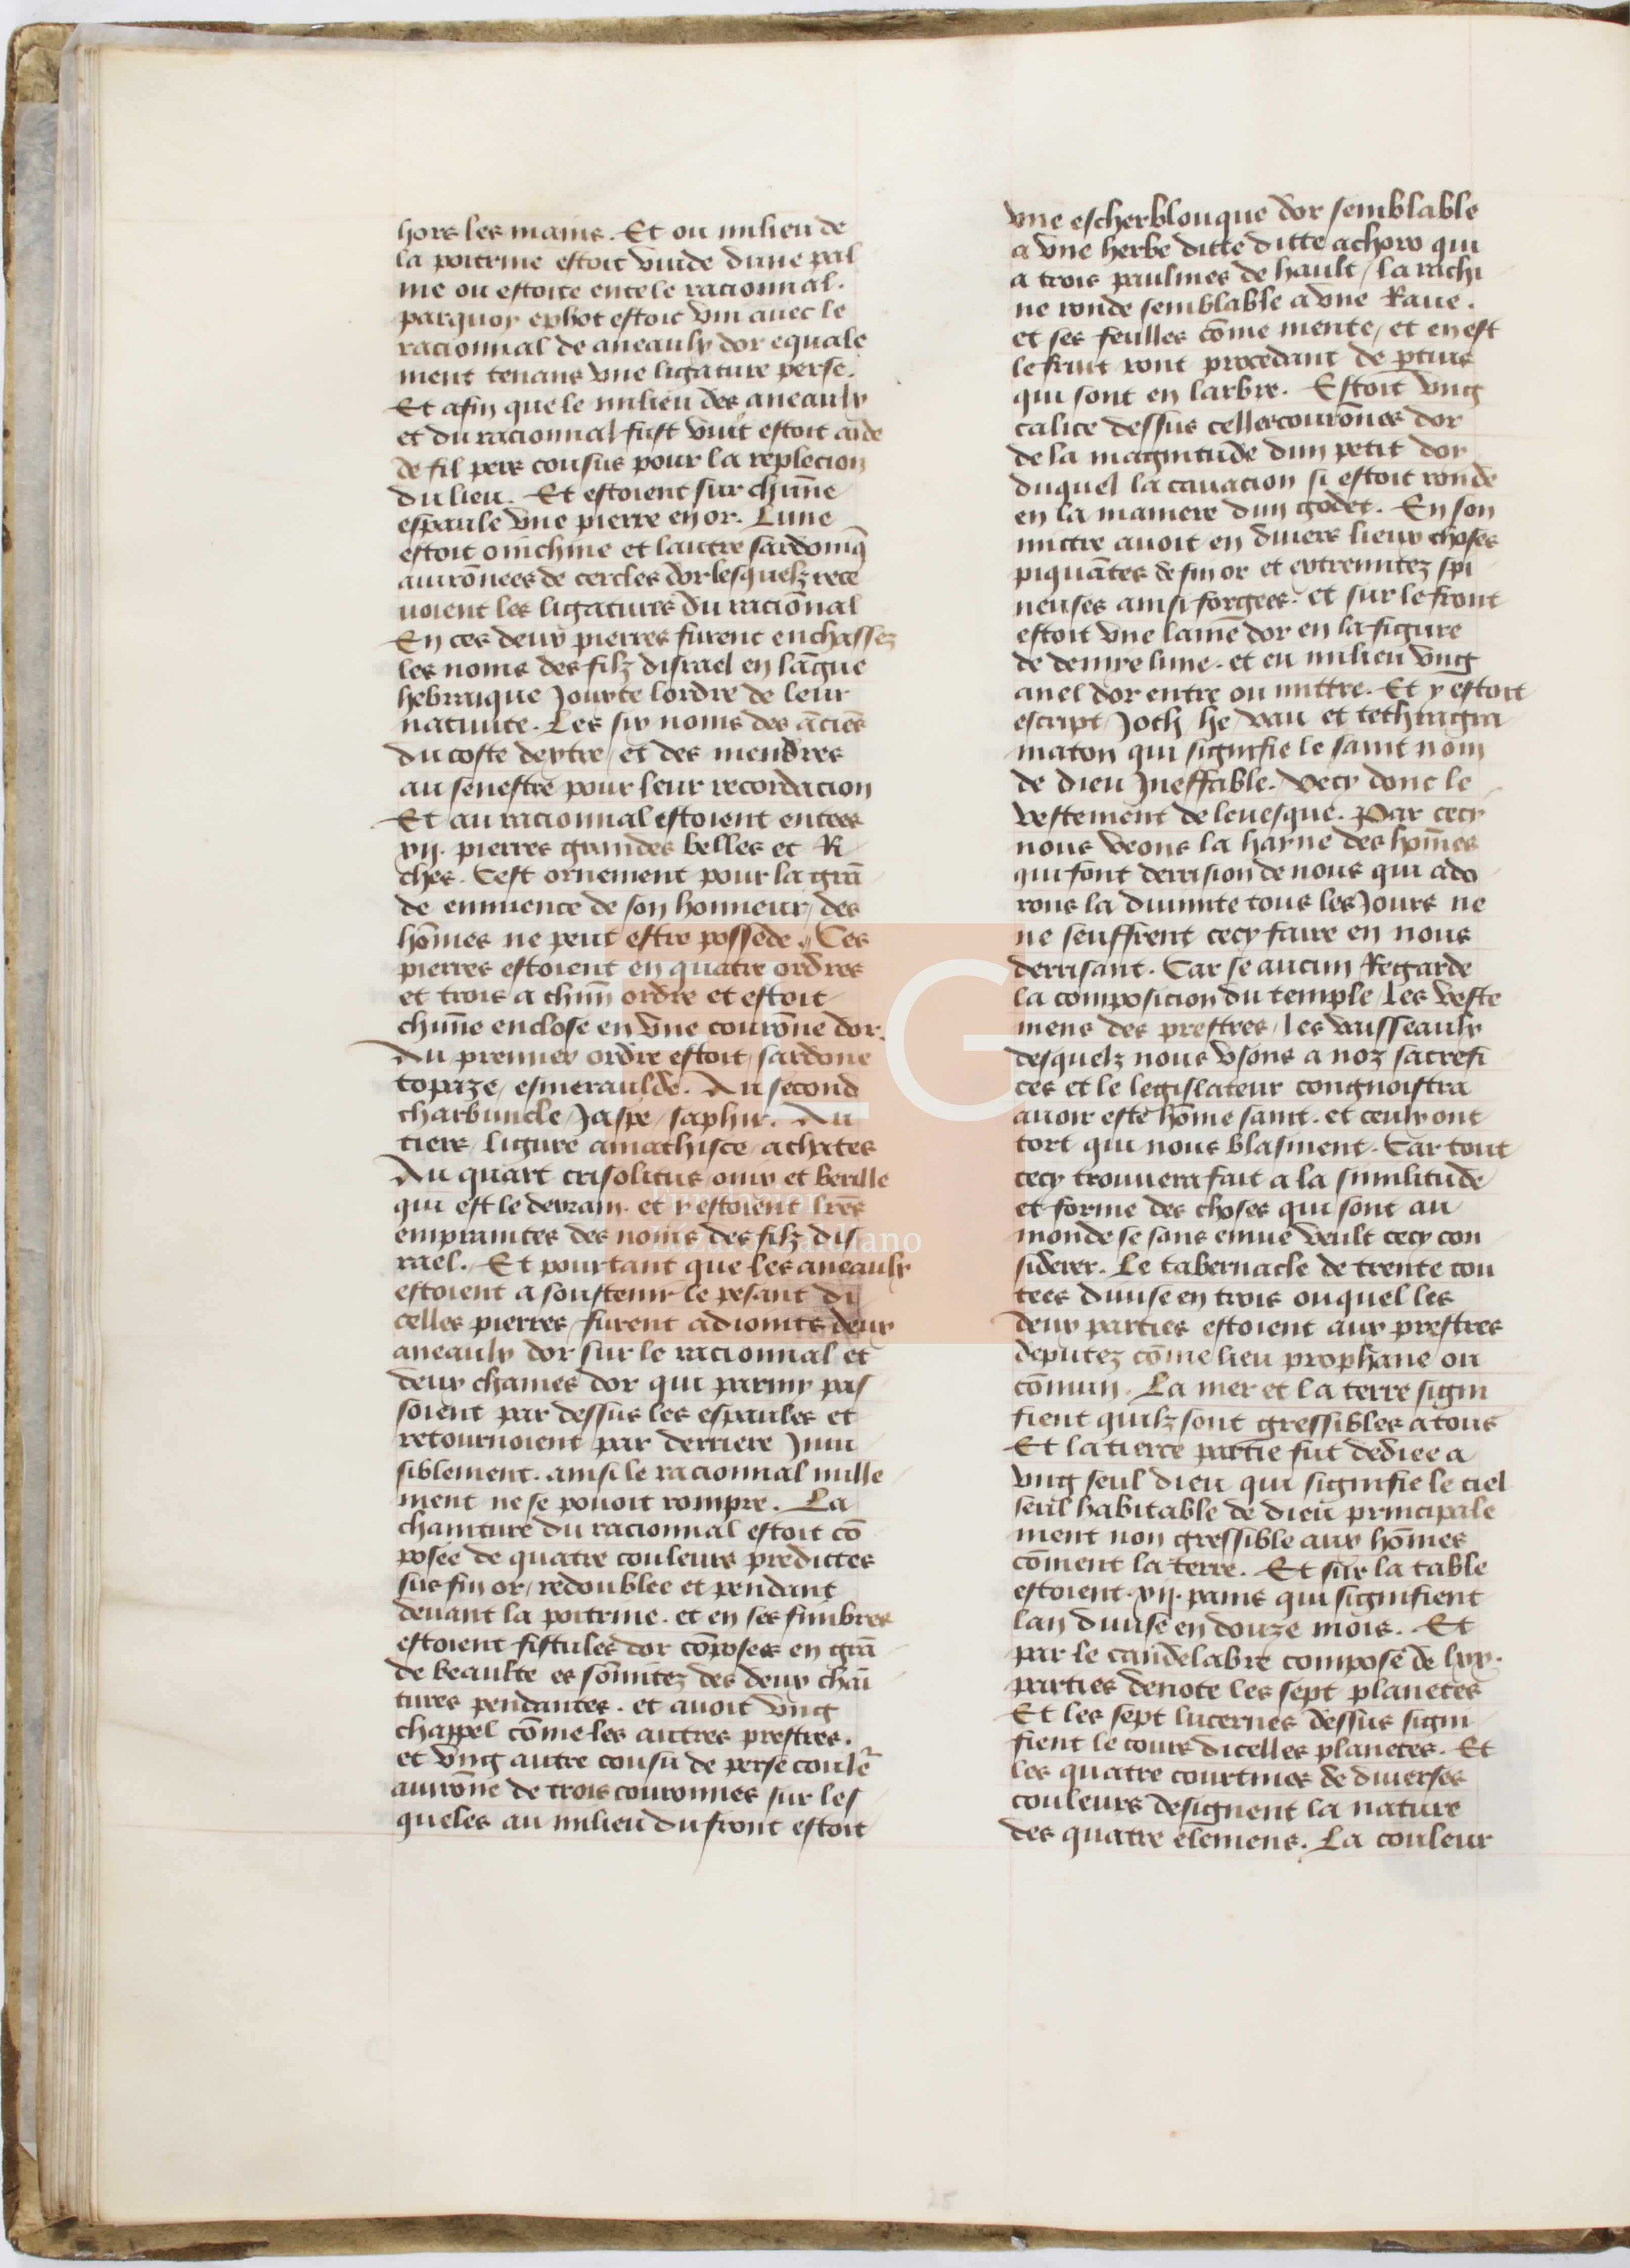 hors les mains. Et ou milieu de
la poitrine estoit vuide dune pal
me ou estoite ente le racionnal.
parquoy ephot estoit vni auec le
racionnal de aneaulx dor equale
ment tenans vne ligature perse.
Et afin que le milieu des aneaulx
et du racionnal fust vnit estoit aide
de fil pers cousus pour la replecion
du lieu. Et estoient sur chūne
espaule vne pierre en or. Lune
estoit onichine et lautre sardoniq̄
auirōnees de cercles dor lesquelz rece
uoient les ligatures du raciōnal
En ces deux pierres furent enchassez
les noms des filz disrael en lāgue
hebraique Jouxte lordre de leur
natiuite. Les six noms des āciēs
du coste dextre / et des mendres
au senestre pour leur recordacion
Et au racionnal estoient entees
xij. pierres grandes belles et Ri
ches. Cest ornement pour la grā
de eminence de son honneur / des
hōmes ne peut estre possede. Ces
pierres estoient en quatre ordres
et trois a chūn ordre et estoit
chūne enclose en vne courōne dor.
Au premier ordre estoit / sardone
topaze / esmeraulde. Au second
charbuncle / Jaspe / saphir. Au
tiers / ligure amathisce / achates
Au quart crisolitus onix et berille
qui est le derrain. et y estoient lrēs
empraintes des noms des filz dis
rael. Et pourtant que les aneaulx
estoient a soustenir le pesant di
celles pierres / furent adioints deux
aneaulx dor sur le racionnal et
deux chaines dor qui parmy pas
soient par dessus les espaules et
retournoient par derriere Jnui
siblement. ainsi le racionnal nulle
ment ne se pouoit rompre. La
chainture du racionnal estoit cō
posee de quatre couleurs predictes
sus fin or / redoublee et pendant
deuant la poitrine. et en ses fimbres
estoient fistules dor cōposees en grā
de beaulte es sōmitez des deux chaī
tures pendantes. et auoit vng
chappel cōme les autres prestres.
et vng autre cousu de perse coulēr
auirōne de trois couronnes sur les
queles au milieu du front estoit
vne escherblouque dor semblable
a vne herbe ditte ditte achoro qui
a trois paulmes de hault / la rachi
ne ronde semblable a vne Raue.
et ses feulles cōme mente / et en est
le fruit ront procedant de ptuis
qui sont en larbre. Estoit vng
calice dessus celles courōnes dor
de la magnitude dun petit doy
duquel la cauacion si estoit ronde
en la maniere dun godet. En son
mittre auoit en diuers lieux choses
piquātes de fin or et extremitez spi
neuses ainsi forgees. et sur le front
estoit vne lame dor en la figure
de demie lune. et eu milieu vng
anel dor entre ou mittre. Et y estoit
escript Joth he vau et tethragra
maton qui signifie le saint nom
de dieu Jneffable. Vecy donc le
vestement de leuesque. Par cecy
nous veons la hayne des hōmes
qui font derrision de nous qui ado
rons la diuinite tous les Jours ne
ne seuffrent cecy faire en nous
derrisant. Car se aucun Regarde
la composicion du temple / les veste
mens des prestres / les vaisseaulx
desquelz nous vsons a noz sacrefi
ces et le legislateur congnoistra
auoir este hōme saint. et ceulx ont
tort qui nous blasment. Car tout
cecy trouuera fait a la similitude
et forme des choses qui sont au
monde se sans enuie veult cecy con
siderer. Le tabernacle de trente cou
tees diuise en trois ouquel les
deux parties estoient aux prestres
deputez cōme lieu prophane ou
cōmun. La mer et la terre signi
fient quilz sont gressibles a tous
Et la tierce partie fut dediee a
vng seul dieu qui signifie le ciel
seul habitable de dieu principale
ment non gressible aux hōmes
cōment la terre. Et sur la table
estoient .xij. pains qui signifient
lan diuise en douze mois. Et
par le candelabre compose de lxx.
parties denote les sept planetes
Et les sept lucernes dessus signi
fient le cours dicelles planetes. Et
les quatre courtines de diuerses
couleurs designent la nature
des quatre elemens. La couleur
LG
Fundación
Lázaro Galdiano
25